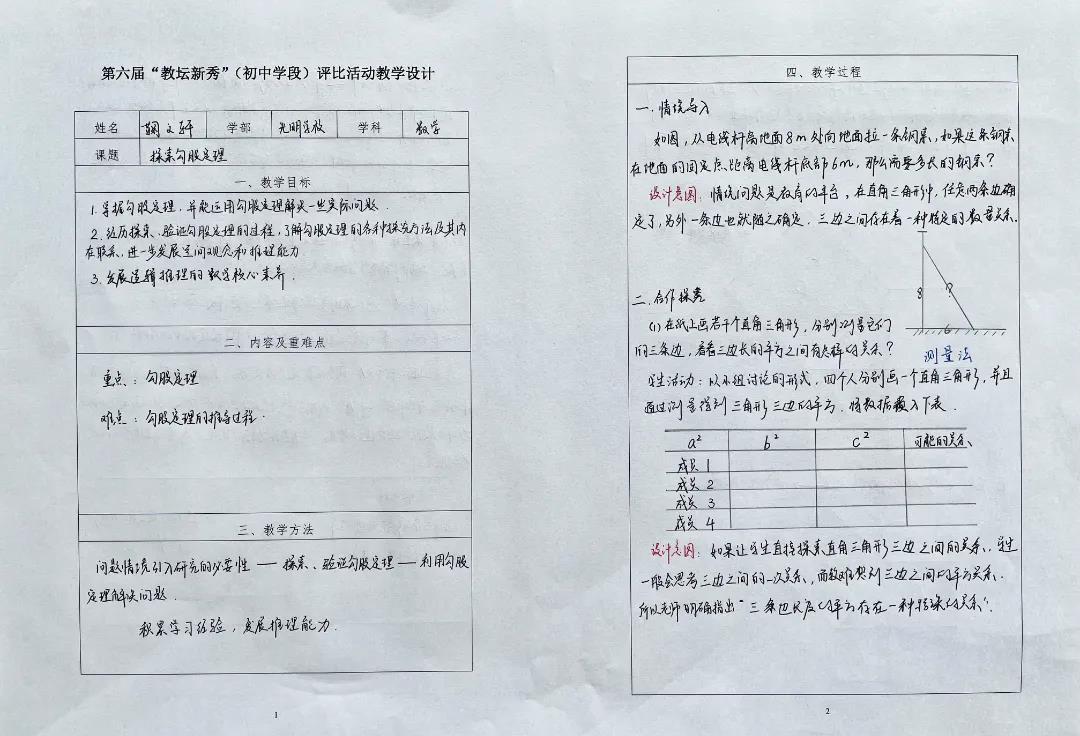 第六届“教坛新秀”（初中学段）评比活动教学设计
姓名 文轩 学部 光明学校 学科 数学
课题 探索勾股定理
一、教学目标
1.掌握勾股定理，并能运用勾股定理解决一些实际问题.
2.经历探索、验证勾股定理的过程，了解勾股定理的各种探究方法及其内
在联系，进一步发展空间观念和推理能力
3.发展逻辑推理的数学核心素养.
二、内容及重难点
重点：勾股定理
难点：勾股定理的推导过程.
三、教学方法
问题情境引入研究的必要性 — 探索、验证勾股定理 — 利用勾股
定理解决问题.
积累学习经验，发展推理能力.
1
四、教学过程
一.情境导入
如图，从电线杆离地面8m处向地面拉一条钢索，如果这条钢索
在地面的固定点距离电线杆底部6m，那么需要多长的钢索？
设计意图：情境问题是教育的平台，在直角三角形中，任意两条边确
定了，另外一条边也就随之确定，三边之间存在着一种特定的数量关系.
8 ?
6
二.合作探究
(1)在纸上画若干个直角三角形，分别测量它们
的三条边，看看三边长的平方之间有怎样的关系？
测量法
学生活动：以小组讨论的形式，四个人分别画一个直角三角形，并且
通过测量得到三角形三边的平方，将数据填入下表.
a² b² c² 可能的关系
成员1
成员2
成员3
成员4
设计意图：如果让学生直接探索直角三角形三边之间的关系，学生
一般会思考三边之间的一次关系，而较难想到三边之间的平方关系.
所以老师明确指出“三条边长度的平方存在一种特殊的关系”.
2